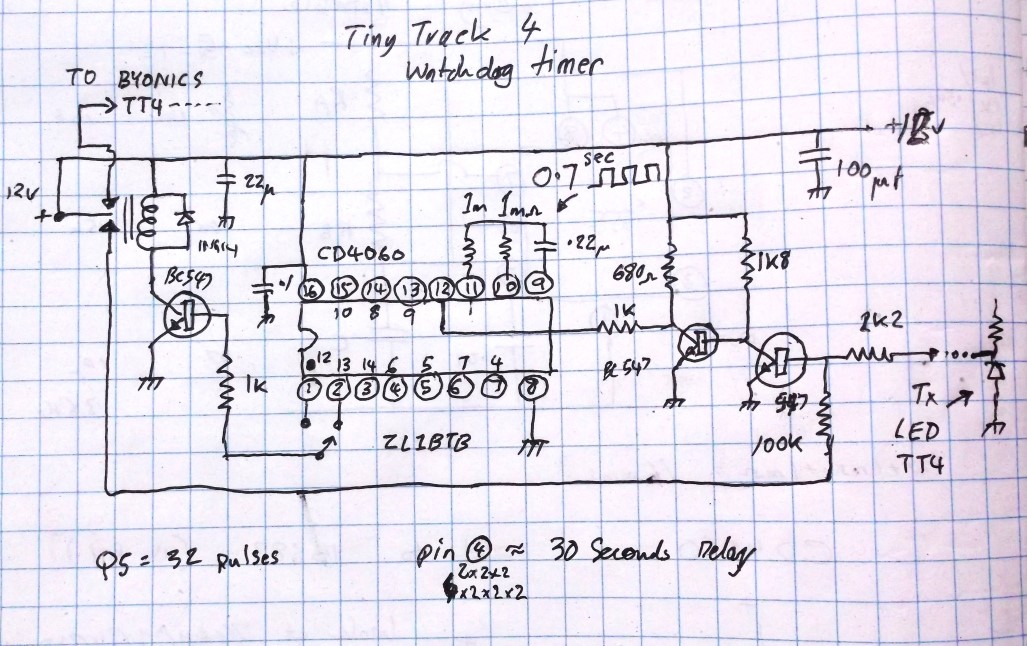 Tiny Track 4
Watchdog timer
TO BYONICS
TT4
+12V
0.7 sec
100µf
12V
+
22µ
1m 1mΩ
.22µ
1N914
CD4060
680Ω
1K8
BC547
.1
16 15 14 13 12 11 10 9
10 8 9 1
1K
2K2
BC547
12 13 14 6 5 7 4
1 2 3 4 5 6 7 8
1K
547
100K
Tx
LED
TT4
ZL1BTB
Q5 = 32 pulses
pin 4 ≈ 30 Seconds Delay
2x2x2
x2x2x2